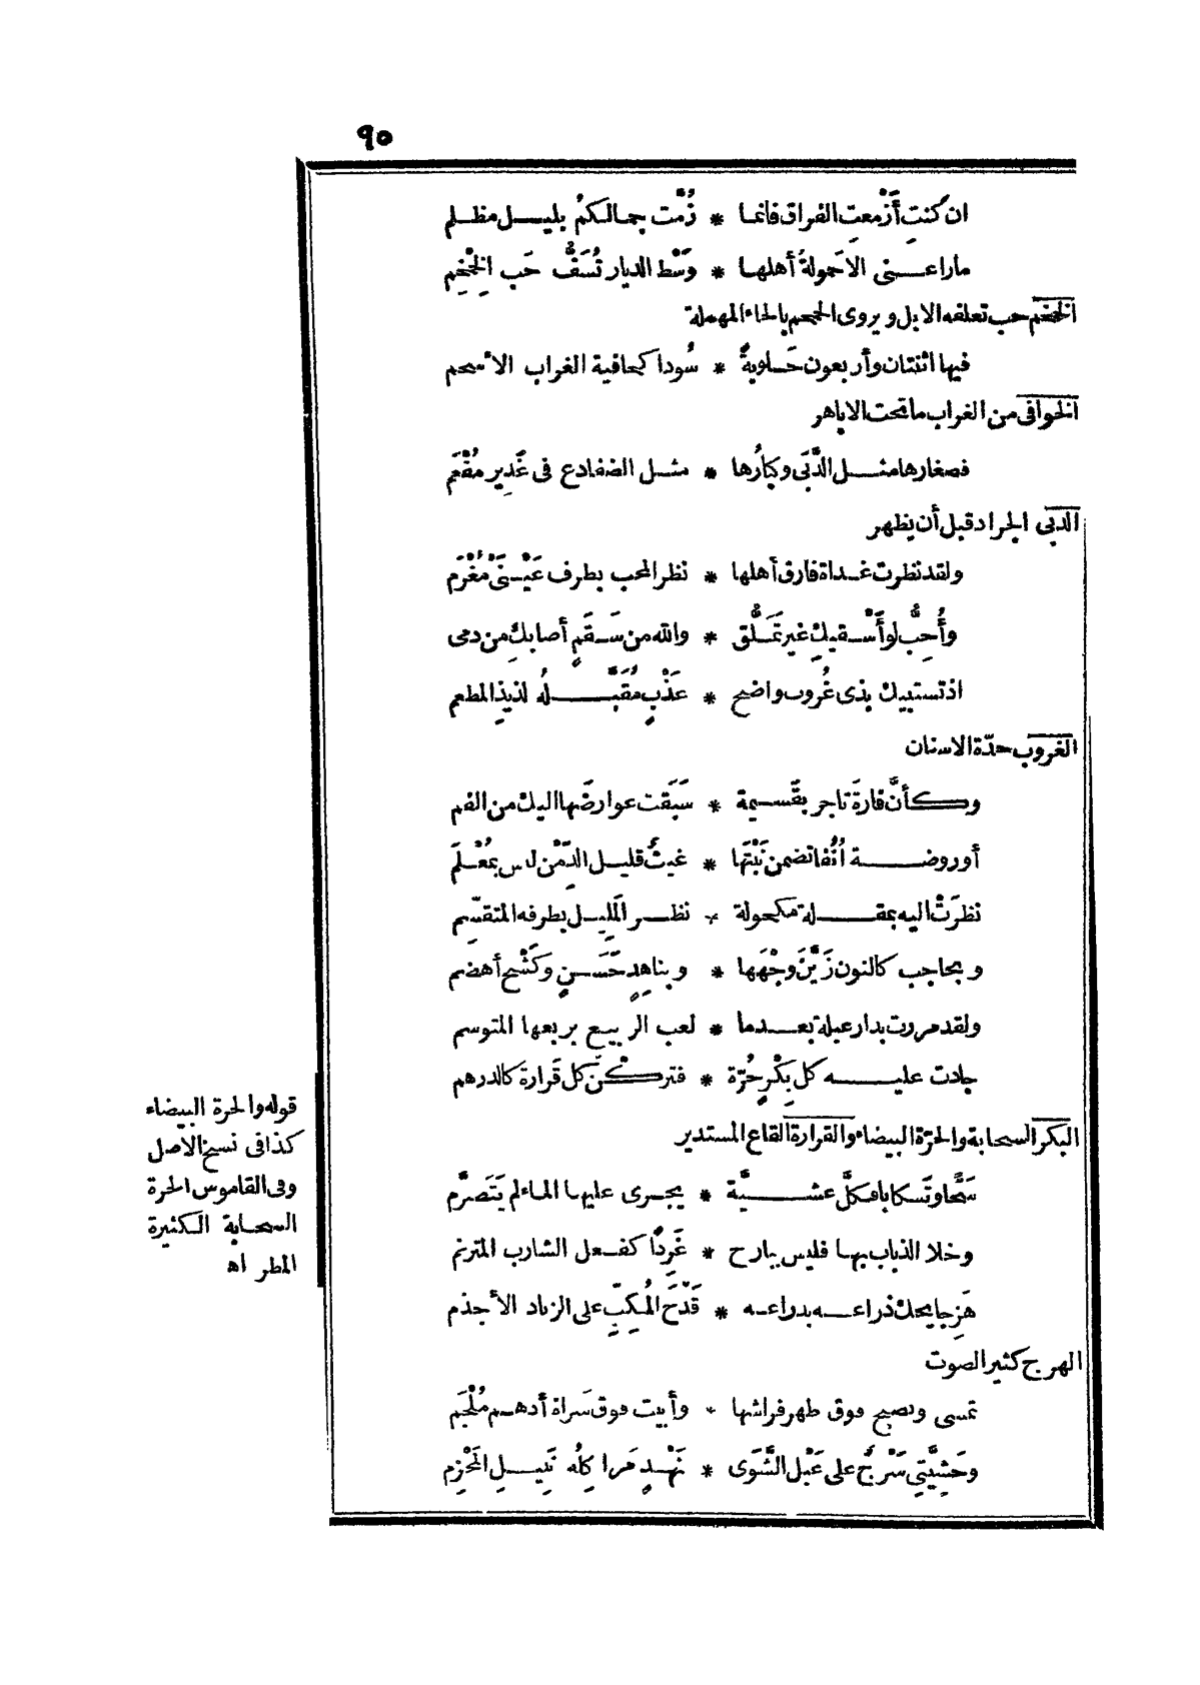 ٩٥
ان كنتِ أَزْمعتِ الفراق فانما * زُمَّت جمالكمُ بليل مظلم
ماراعنى الاحَمولةُ أهلها * وَسْط الديار تُسَفُّ حَب الخِمْخِم
الخمخم حب تعلفه الابل ويروى الحمحم بالحاء المهملة
فيها اثنتان وأربعون حَلوبةً * سُودا كخافية الغراب الأسحم
الخوافى من الغراب ماتحت الاباهر
فصغارها مثل الدَّبَى وكِبارُها * مثل الضفادع فى غَدِير مُفْعَم
الدبى الجراد قبل أن يظهر
ولقد نظرت غداة فارق أهلها * نظر المحب بطرف عَيْنَىْ مُغْرَم
وأُحِبُّ لو أَسْقيكِ غير تَمَلُّق * والله من سَقَمٍ أصابكِ من دمى
اذ تستبيك بذى غُروب واضح * عَذْبٍ مُقَبَّلُه لذيذِ المطعم
الغروب حدّة الاسنان
وكأنَّ فارةَ تاجر بقَسيمة * سَبَقت عوارضَها اليك من الفم
أوروضة أنُفا تضمن نَبْتَها * غيثٌ قليل الدِّمْن ليس بمُعْلَم
نظرَتْ اليه بمقلة مكحولة * نظر المَلِيل بطرفه المتقسِّم
وبحاجب كالنون زَيَّنَ وجْهَها * وبناهِدٍ حَسَنٍ وكَشْح أهضم
ولقد مررت بدار عبلة بعدما * لعب الربيع بربعها المتوسم
جادت عليه كل بِكْرٍ حُرّة * فتركْنَ كل قَرارة كالدرهم
البكر السحابة والحرّة البيضاء والقرارة القاع المستدير
سَحًّا وتَسكابا فكلَّ عشيَّة * يجرى عليها الماء لم يَتَصرَّم
وخلا الذباب بها فليس ببارح * غَرِدًا كفعل الشارب المترنم
هَزِجا يحك ذراعه بذراعه * قَدْحَ المُكِبِّ على الزناد الأجذم
الهزج كثير الصوت
تمسى وتصبح فوق ظهر فراشها * وأبيت فوق سَراة أدهم مُلْجَم
وحَشِيَّتِى سَرْجٌ على عَبْل الشَّوَى * نَهْدٍ مَراكِلُه نَبِيلِ المَحْزِم
قوله والحرة البيضاء
كذا فى نسخ الاصل
وفى القاموس الحرة
السحابة الكثيرة
المطر اه